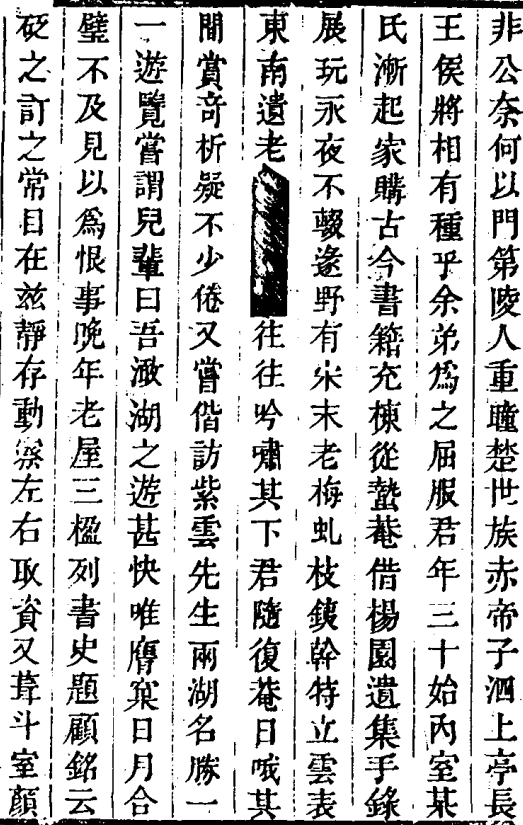 非公奈何以門第陵人重瞳楚世族赤帝子泗上亭長
王侯將相有種乎余弟爲之屈服君年三十始內室某
氏漸起家購古今書籍充棟從蟄菴借楊園遺集手錄
展玩永夜不輟逡野有宋末老梅虬枝鐵幹特立雲表
東南遺老往往吟嘯其下君隨復菴日哦其
間賞奇析疑不少倦又嘗偕訪紫雲先生兩湖名勝一
一遊覽嘗謂兒輩曰吾澉湖之遊甚快唯膺窠日月合
璧不及見以爲恨事晚年老屋三楹列書史題顧銘云
砭之訂之常目在兹靜存動察左右取資又葺斗室顏